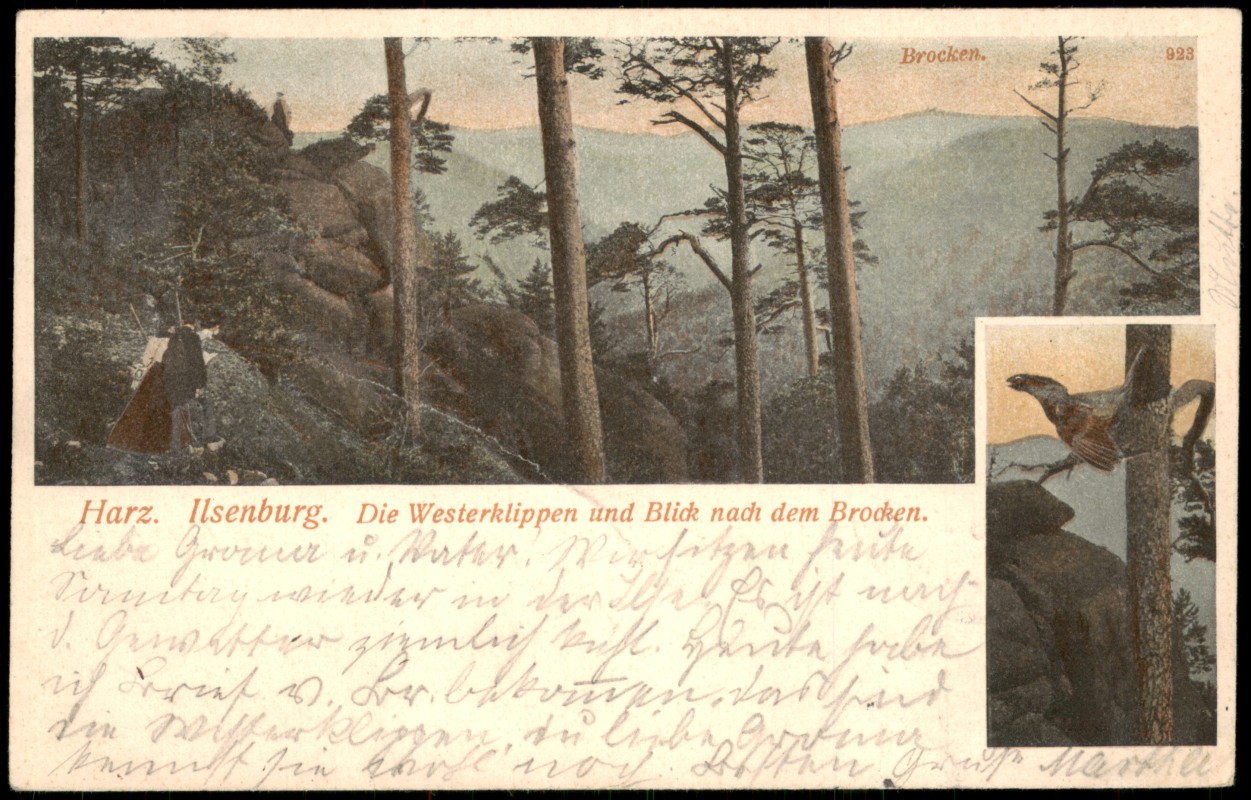 Brocken.
923
Harz. Ilsenburg. Die Westerklippen und Blick nach dem Brocken.
Liebe Groma u. Vater! Wir sitzen heute
wieder in der Ilse. Es ist nach
d. Gewitter ziemlich kühl. Heute habe
ich Brief v. Br. bekommen. das sind
die Westerklippen, du liebe Groma
kennst sie wohl noch. Besten Gruß Martha